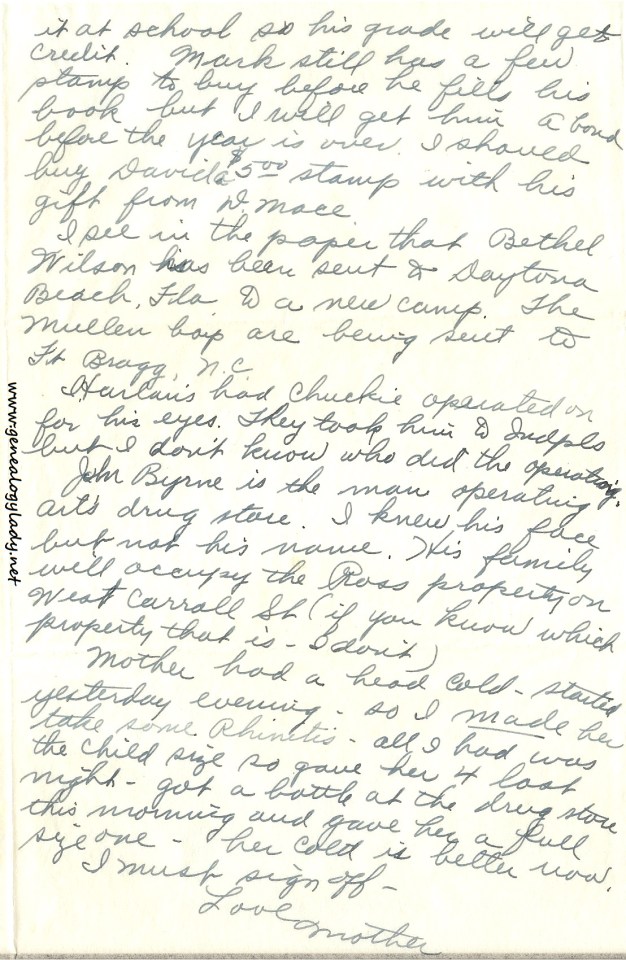 it at school so his grade will get
credit. Mark still has a few
stamp to buy before he fills his
book but I will get him a bond
before the year is over. I should
buy David a $5.00 stamp with his
gift from D Mace
I see in the paper that Bethel
Wilson has been sent to Daytona
Beach, Fla to a new camp. The
Mullen boys are being sent to
Ft Bragg, N.C.
Harlan's had Chuckie operated on
for his eyes. They took him to Indpls
but I don't know who did the operating.
John Byrne is the man operating
Art's drug store. I knew his face
but not his name. His family
will occupy the Ross property on
West Carroll St (if you know which
property that is - I don't)
Mother had a head cold - started
yesterday evening - so I made her
take some Rhinitis - all I had was
the child size so gave her 4 last
night - got a bottle at the drug store
this morning and gave her a full
size one - her cold is better now.
I must sign off -
Love
Mother
www.genealogylady.net